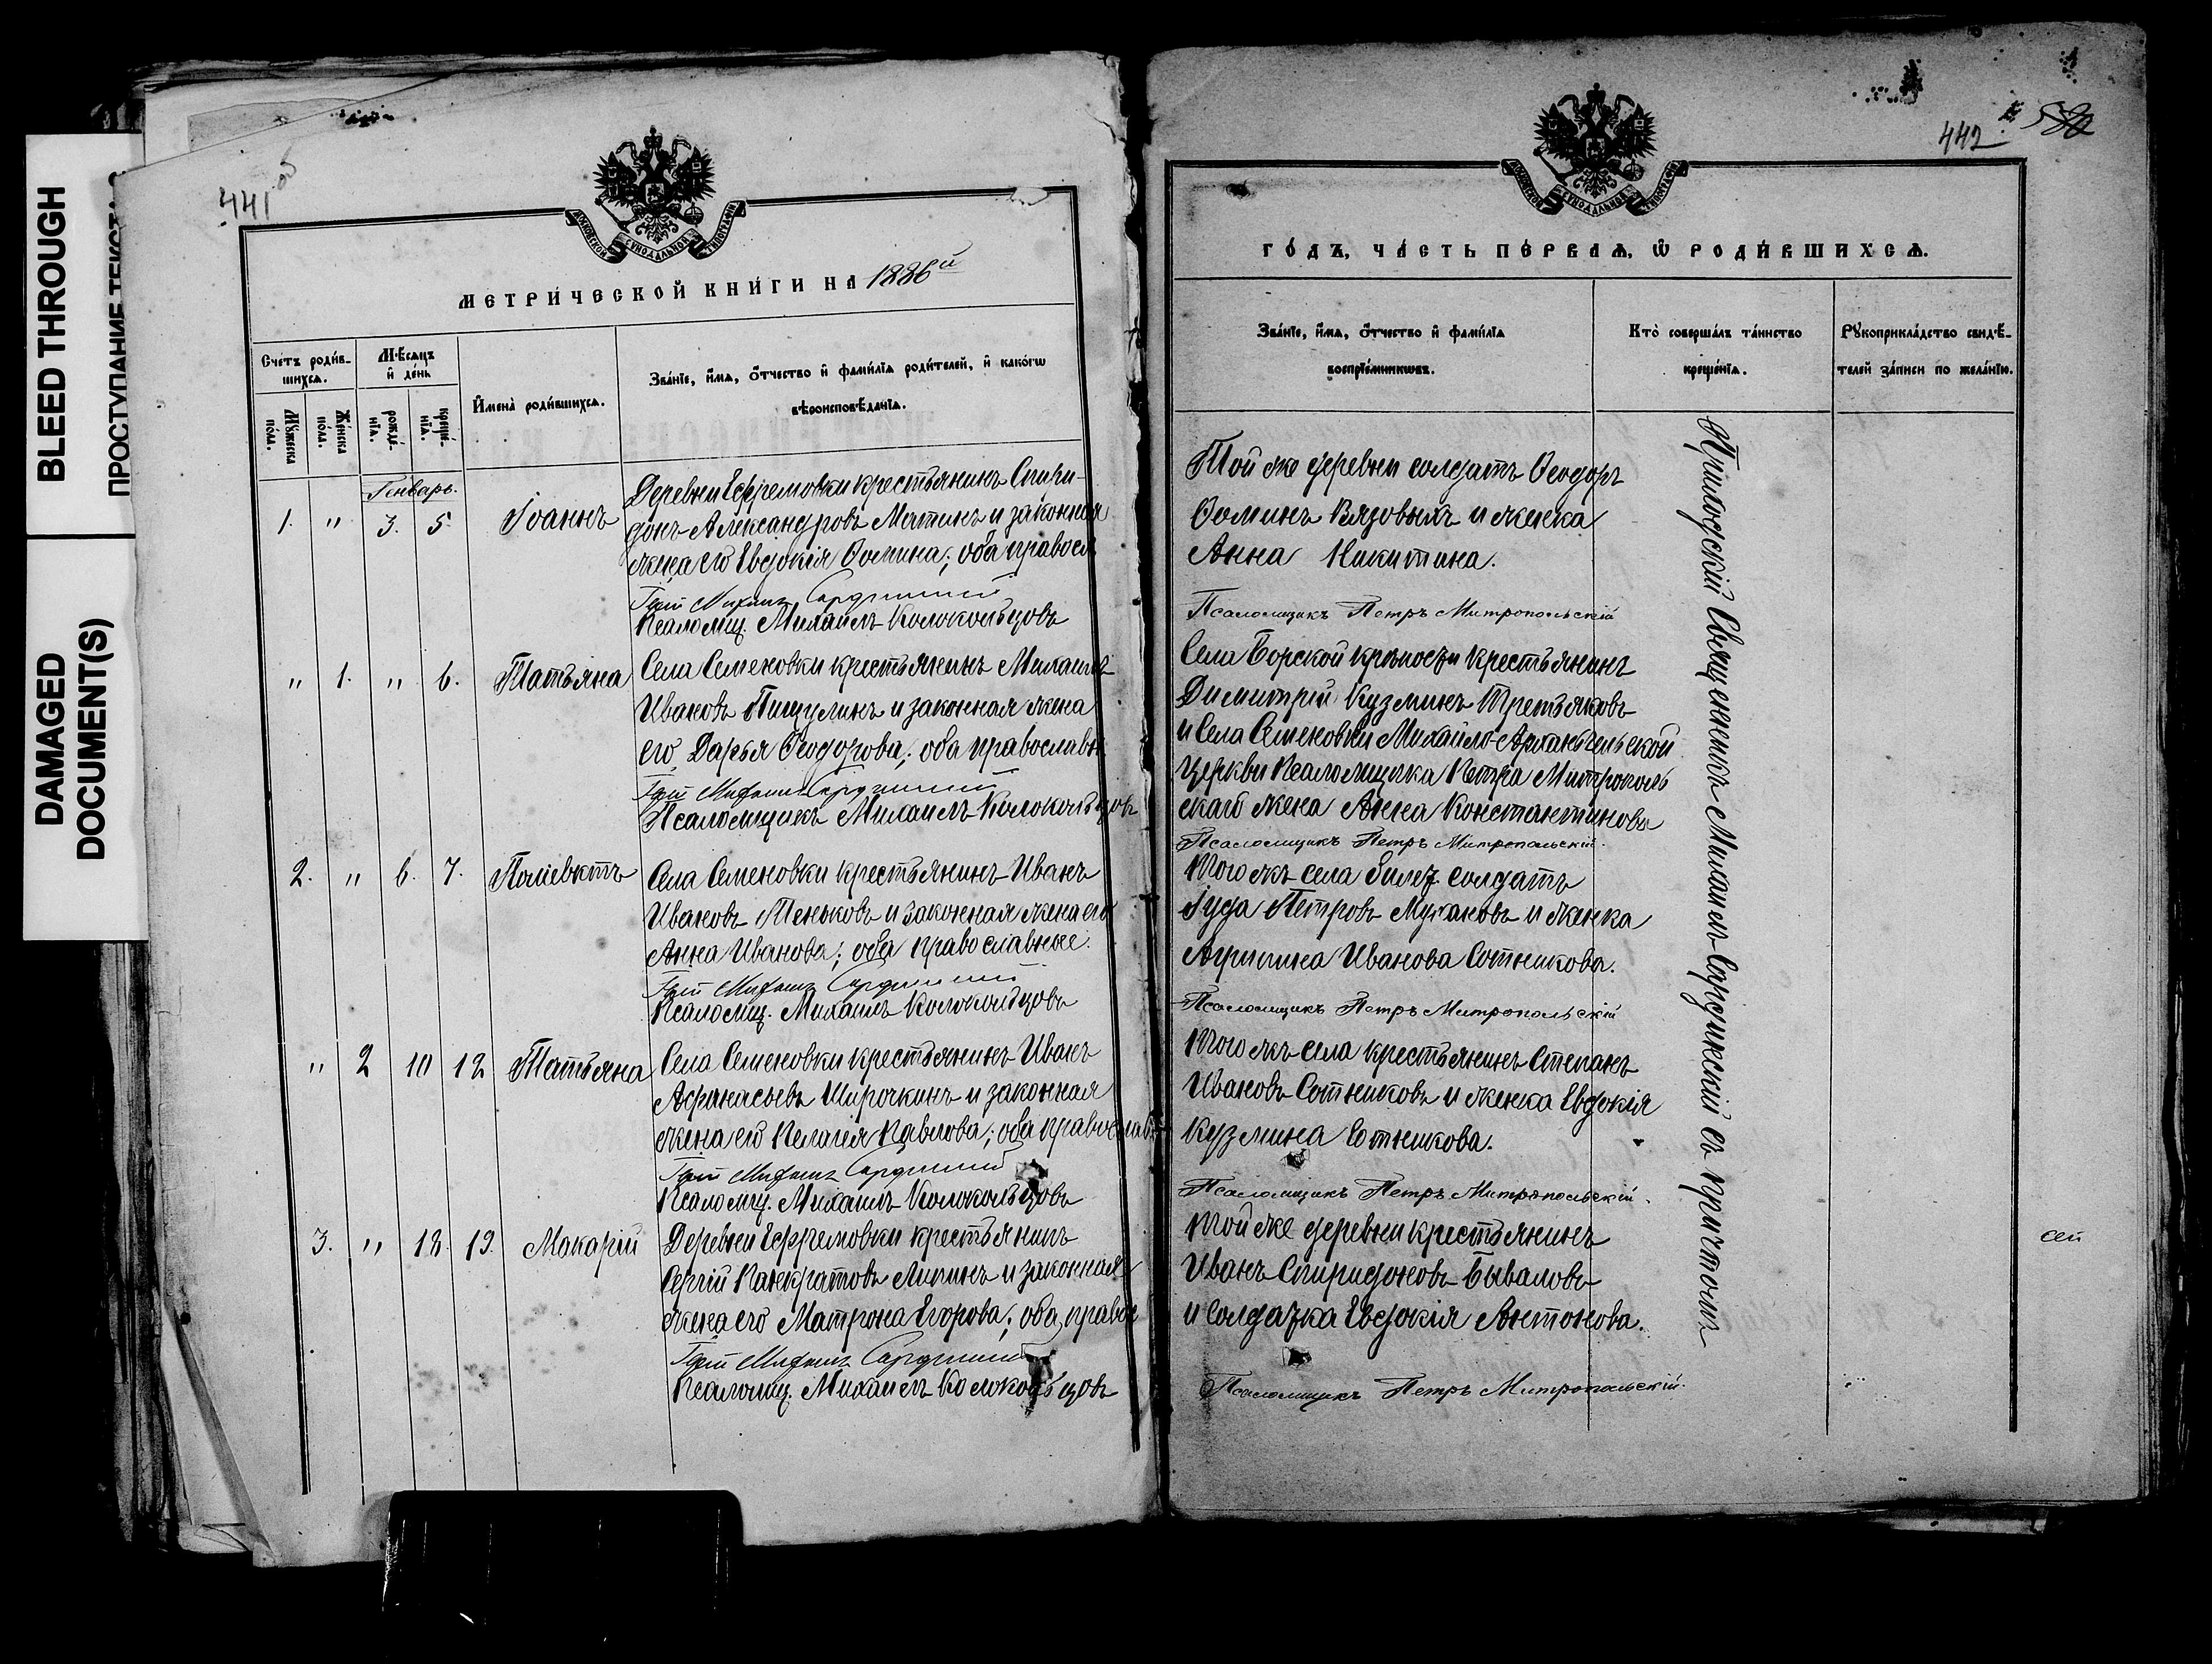 BLEED THROUGH
ПРОСТУПАНИЕ ТЕКСТА
DAMAGED
DOCUMENT(S)
441 об
МОСКОВСКОЙ СУНОДАЛЬНОЙ ТИПОГРАФІИ
МЕТРИ́ЧЕСКОЙ КНИ́ГИ НА 1886й
Сче́тъ роди́в-
шихсѧ.
Мѣ́сѧцъ
и҆ де́нь
И҆мена̀ роди́вшихсѧ.
Зва́нїе, и҆́мѧ, ѻ҆́тчество и҆ фами́лїѧ роди́телей, и҆ како́гѡ
вѣроисповѣ́данїѧ.
Мꙋ́жеска
по́ла.
Же́нска
по́ла.
рожде́-
нїѧ.
креще́-
нїѧ.
Генварь.
1. " 3. 5. Іоаннъ
Деревни Ефремовки крестьянинъ Спири-
донъ Александровъ Мятинъ и законная
жена его Евдокія Ѳомина; оба правосл
Михаилъ Сардикский
Псаломщ. Михаилъ Колокольцовъ
" 1. " 6. Татьяна
Села Семеновки крестьянинъ Михаилъ
Ивановъ Пищулинъ и законная жена
его Дарья Ѳеодорова; оба православн
Михаилъ Сардикский
Псаломщикъ Михаилъ Колокольцовъ
2. " 6. 7. Поліевктъ
Села Семеновки крестьянинъ Иванъ
Ивановъ Теньковъ и законная жена его
Анна Иванова; оба православные.
Михаилъ Сардикский
Псаломщ. Михаилъ Колокольцовъ
" 2 10 12 Татьяна
Села Семеновки крестьянинъ Иванъ
Афанасьевъ Широчкинъ и законная
жена его Пелагія Павлова; оба православн
Михаилъ Сардикский
Псаломщ. Михаилъ Колокольцовъ
3. " 18. 19. Макарій
Деревни Ефремовки крестьянинъ
Сергій Панкратовъ Липинъ и законная
жена его Матрона Егорова; оба правос
Михаилъ Сардикский
Псаломщ. Михаилъ Колокольцовъ
442
МОСКОВСКОЙ СУНОДАЛЬНОЙ ТИПОГРАФІИ
ГО́ДЪ, ЧА́СТЬ ПЕ́РВАѦ, Ѡ҆ РОДИ́ВШИХСѦ.
Зва́нїе, и҆́мѧ, ѻ҆́тчество и҆ фами́лїѧ
воспрїе́мникѡвъ.
Кто̀ соверша́лъ та́инство
креще́нїѧ.
Рꙋкоприкла́дство свидѣ́-
телей за́писи по жела́нїю.
Той же деревни солдатъ Ѳеодоръ
Ѳоминъ Вязовыхъ и женка
Анна Никитина.
Псаломщикъ Петръ Митропольскій
Села Борской крѣпости крестьянинъ
Димитрій Кузминъ Третьяковъ
и Села Семеновки Михайло-Архангельской
Церкви Псаломщика Петра Митрополь
скаго жена Анна Константинова
Псаломщикъ Петръ Митропольскій.
Того жъ села билет. солдатъ
Іуда Петровъ Мухановъ и женка
Агрипина Иванова Сотникова.
Псаломщикъ Петръ Митропольскій
Того жъ села крестьянинъ Степанъ
Ивановъ Сотниковъ и женка Евдокія
Кузмина Сотникова.
Псаломщикъ Петръ Митропольскій.
Той же деревни крестьянинъ
Иванъ Спиридоновъ Бываловъ
и солдатка Евдокія Антонова.
Псаломщикъ Петръ Митропольскій.
Приходскій Священникъ Михаилъ Сардикскій съ причтомъ
сей